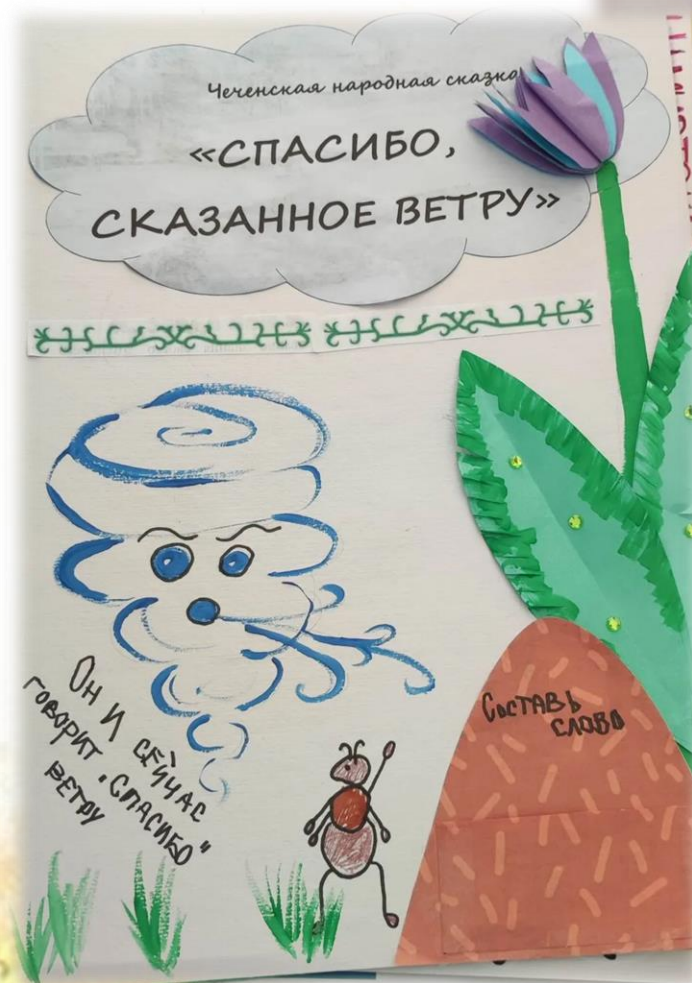 Чеченская народная сказка
«СПАСИБО,
СКАЗАННОЕ ВЕТРУ»
Он И СЕЙЧАС
ГОВОРИТ „СПАСИБО"
ВЕТРУ
СоСТАВЬ
СЛОВО